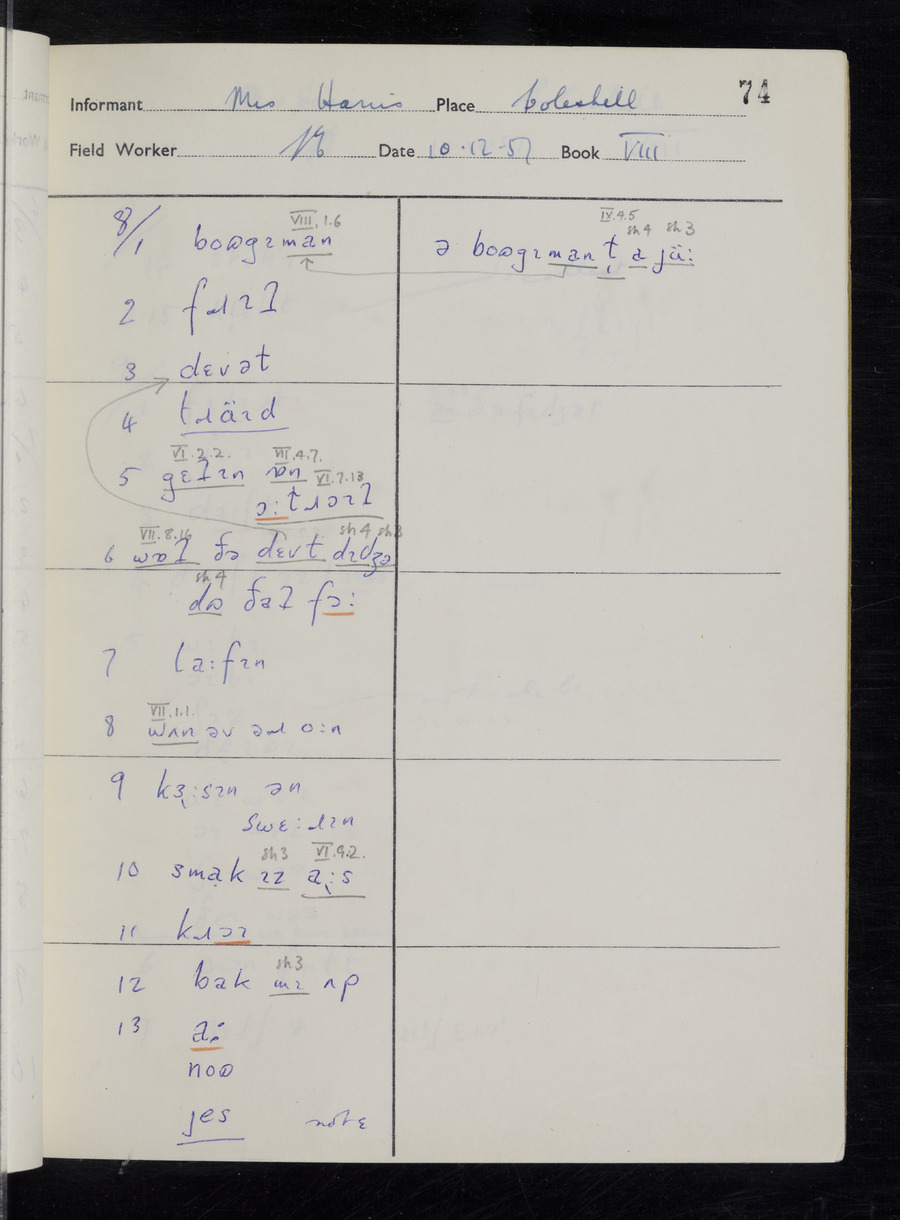 74
Informant Mrs Harris Place Coleshill
Field Worker Date 10.12.57 Book VIII
VIII.1.6 IV.4.5
sh4 sh3
8/1 boʊgɪman ə boʊgɪman t̩ a jü:
2 fɹɪɫ
3 dɛvət
4 tɹäɪd
VI.2.2. VII.4.7.
5 gɛɫɪn ɒn VI.7.13
ɔ:tɹəɪɫ
VII.8.16 sh4 sh3
6 wɒɫ ðə dɛvt dɪdʒə
sh4
dʊ ðaɫ fɔ:
7 la:fɪn
VII.1.1.
8 wʌn əv əɹ o:n
9 kɜ̣:sɪn ən
swɛ:ɹɪn
sh3 VI.9.2.
10 smak ɪz ạ:s
11 kɹɔɪ
sh3
12 bak mɪ ʌp
13 a:
noʊ
jes note